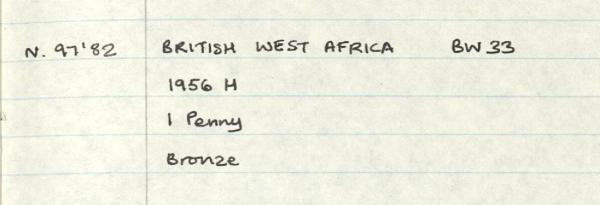 N. 97'82 BRITISH WEST AFRICA BW 33
1956 H
1 Penny
Bronze